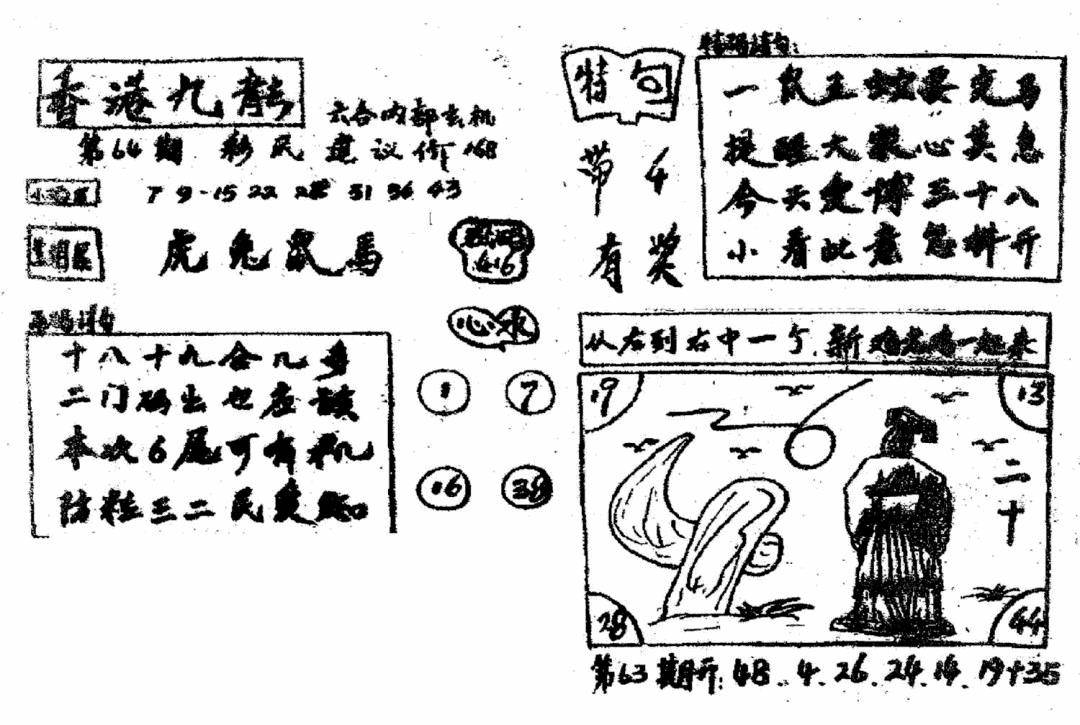 香港九龍
六合内部玄机
第64期 彩民 建议价168
7 9-15 22 28 31 36 43
虎兔鼠馬
416
心水
十八十九合几多
二门码出也应谈
本次6尾可有机
防粒三二民爱知
1 7
16 38
特句
带4
有奖
特码诗句:
一民五蛇要交马
提醒大众心莫急
今天爱博三十八
小看此意怎料开
从左到右中一个,新鸡老鸡一起来
19 13
二十
28 44
第63期开:48..4.26.24.14.19+35